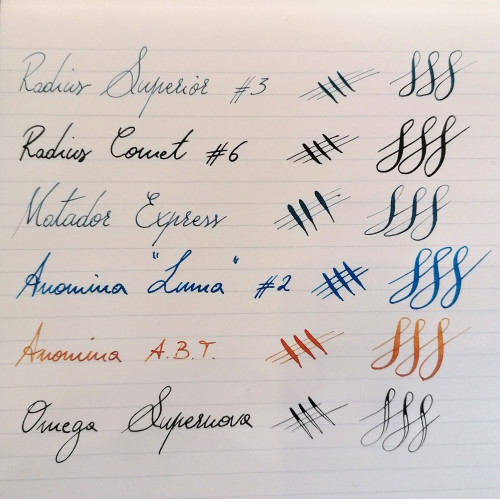 Radius Superior #3
Radius Comet #6
Matador Express
Anomina "Luma" #2
Anomina A.B.T.
Omega Supernova